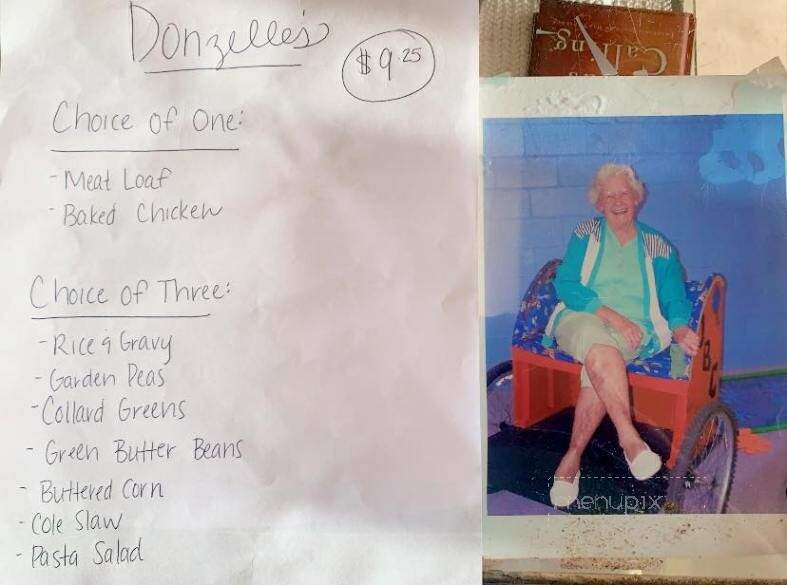 Donzelle's
$9.25
Choice of One:
- Meat Loaf
- Baked Chicken
Choice of Three:
- Rice & Gravy
- Garden Peas
- Collard Greens
- Green Butter Beans
- Buttered Corn
- Cole Slaw
- Pasta Salad
Calling
BC
menupix